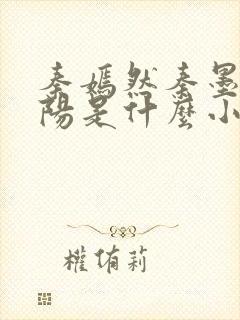 秦嫣然秦墨
陽是什麼小
權侑莉